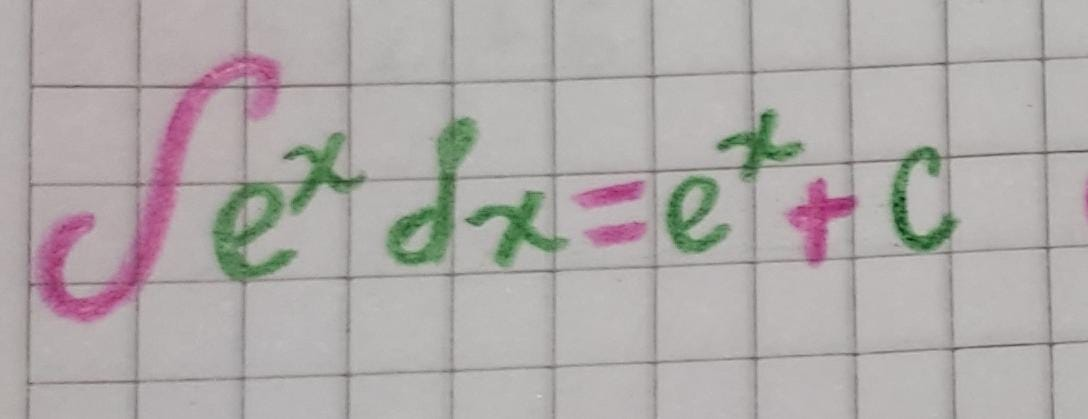 ∫eˣ dx = eˣ + C